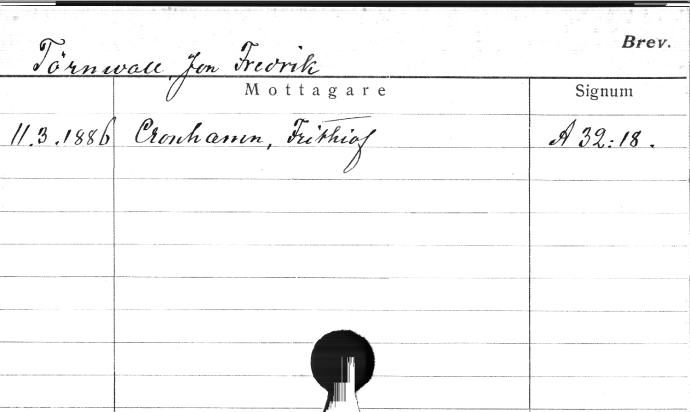 Brev.
Törnwall, Jon Fredrik
Mottagare Signum
11.3.1886 Cronhamn, Frithiof A 32:18.